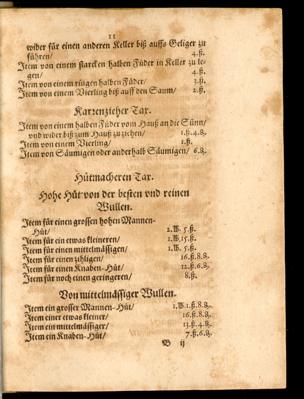 11
wider für einen anderen Keller biß auffs Geliger zu
führen/ 4.ß.
Item von einem starcken halben Füder in Keller zu le-
gen/ 4.ß.
Item von einem ringen halben Füder/ 3.ß.
Item von einem Vierling biß auff den Saum/ 2.ß.
Karrenzieher Tax.
Item von einem halben Füder vom Hauß an die Sünn/
vnd wider biß zum Hauß zu ziehen/ 1.ß.4.₰.
Item von einem Vierling/ 1.ß.
Item von Säumigen oder anderhalb Säumigen/ 6.₰.
Hütmacheren Tax.
Hohe Hüt von der besten vnd reinen
Wullen.
Item für einen grossen hohen Mannen-
Hüt/ 2.℔. 5.ß.
Item für ein etwas kleineren/ 1.℔. 15.ß.
Item für einen mittelmässigen/ 1.℔. 5.ß.
Item für einen zihligen/ 16.ß.8.₰.
Item für einen Knaben-Hüt/ 12.ß.6.₰.
Item für noch einen geringeren/ 8.ß.
Von mittelmässiger Wullen.
Item ein grosser Mannen-Hüt/ 1.℔.1.ß.8.₰.
Item einer etwas kleiner/ 16.ß.8.₰.
Item ein mittelmässiger/ 13.ß.4.₰.
Item ein Knaben-Hüt/ 7.ß.6.₰.
B ij